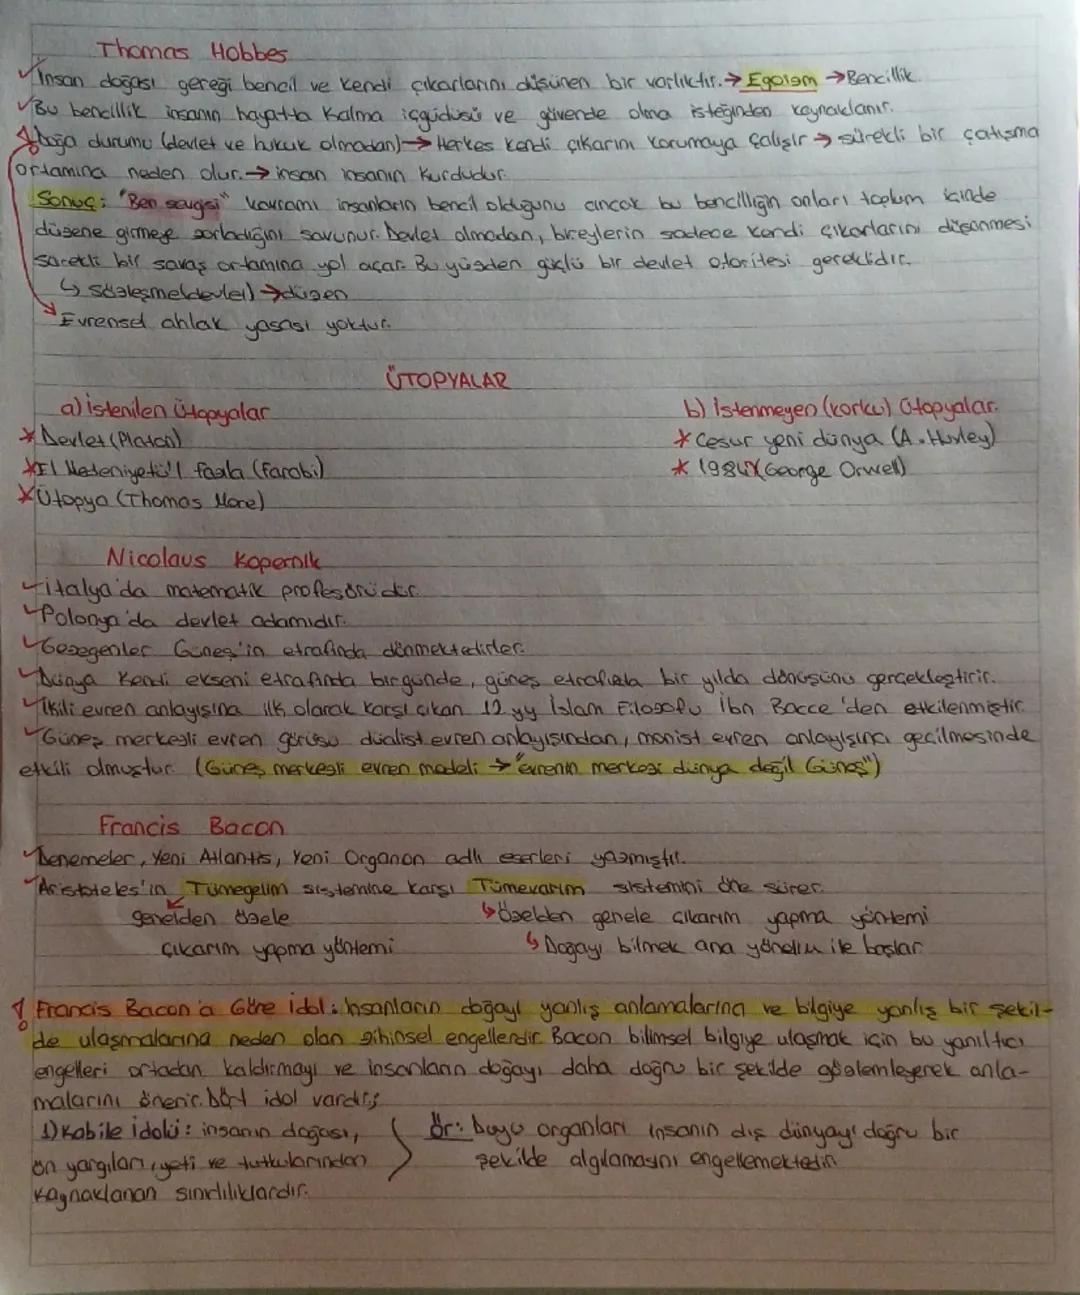 Thomas Hobbes
İnsan doğası gereği bencil ve kendi çıkarlarını düşünen bir varlıktır. → Egoizm → Bencillik.
Bu bencillik insanın hayatta kalma içgüdüsü ve güvende olma isteğinden kaynaklanır.
Doğa durumu (devlet ve hukuk olmadan) → Herkes kendi çıkarını korumaya çalışır → sürekli bir çatışma
ortamına neden olur. → insan insanın kurdudur.
Sonuç: "Ben sevgisi" kavramı insanların bencil olduğunu ancak bu bencilliğin onları toplum içinde
düzene girmeye zorladığını savunur. Devlet olmadan, bireylerin sadece kendi çıkarlarını düşünmesi
sürekli bir savaş ortamına yol açar. Bu yüzden güçlü bir devlet otoritesi gereklidir.
↳ sözleşme(devlet) → düzen
Evrensel ahlak yasası yoktur.
ÜTOPYALAR
a) İstenilen Ütopyalar
* Devlet (Platon)
* El Medeniyetü'l fazla (farabi)
* Ütopya (Thomas More)
b) İstenmeyen (korku) Ütopyalar.
* Cesur yeni dünya (A. Huxley)
* 1984 (George Orwell)
Nicolaus Kopernik
İtalya'da matematik profesörüdür.
Polonya'da devlet adamıdır.
Gezegenler Güneş'in etrafında dönmektedirler.
Dünya kendi ekseni etrafında bir günde, güneş etrafında bir yılda dönüşünü gerçekleştirir.
İkili evren anlayışına ilk olarak karşı çıkan 12 yy İslam Filozofu İbn Bacce'den etkilenmiştir.
Güneş merkezli evren görüşü düalist evren anlayışından, monist evren anlayışına geçilmesinde
etkili olmuştur. (Güneş merkezli evren modeli → "evrenin merkezi dünya değil Güneş")
Francis Bacon
Denemeler, Yeni Atlantis, Yeni Organon adlı eserleri yazmıştır.
Aristoteles'in Tümdengelim sistemine karşı Tümevarım sistemini öne sürer.
genelden özele
çıkarım yapma yöntemi
↳ Özelden genele çıkarım yapma yöntemi
↳ Doğayı bilmek ana yönelim ile başlar.
! Francis Bacon'a Göre İdol: insanların doğayı yanlış anlamalarına ve bilgiye yanlış bir şekil-
de ulaşmalarına neden olan zihinsel engellerdir. Bacon bilimsel bilgiye ulaşmak için bu yanıltıcı
engelleri ortadan kaldırmayı ve insanların doğayı daha doğru bir şekilde gözlemleyerek anla-
malarını önerir. Dört idol vardır;
1) Kabile İdolü: insanın doğası,
ön yargıları, yeti ve tutkularından
kaynaklanan sınırlılıklardır.
Ör: duyu organları insanın dış dünyayı doğru bir
şekilde algılamasını engellemektedir.